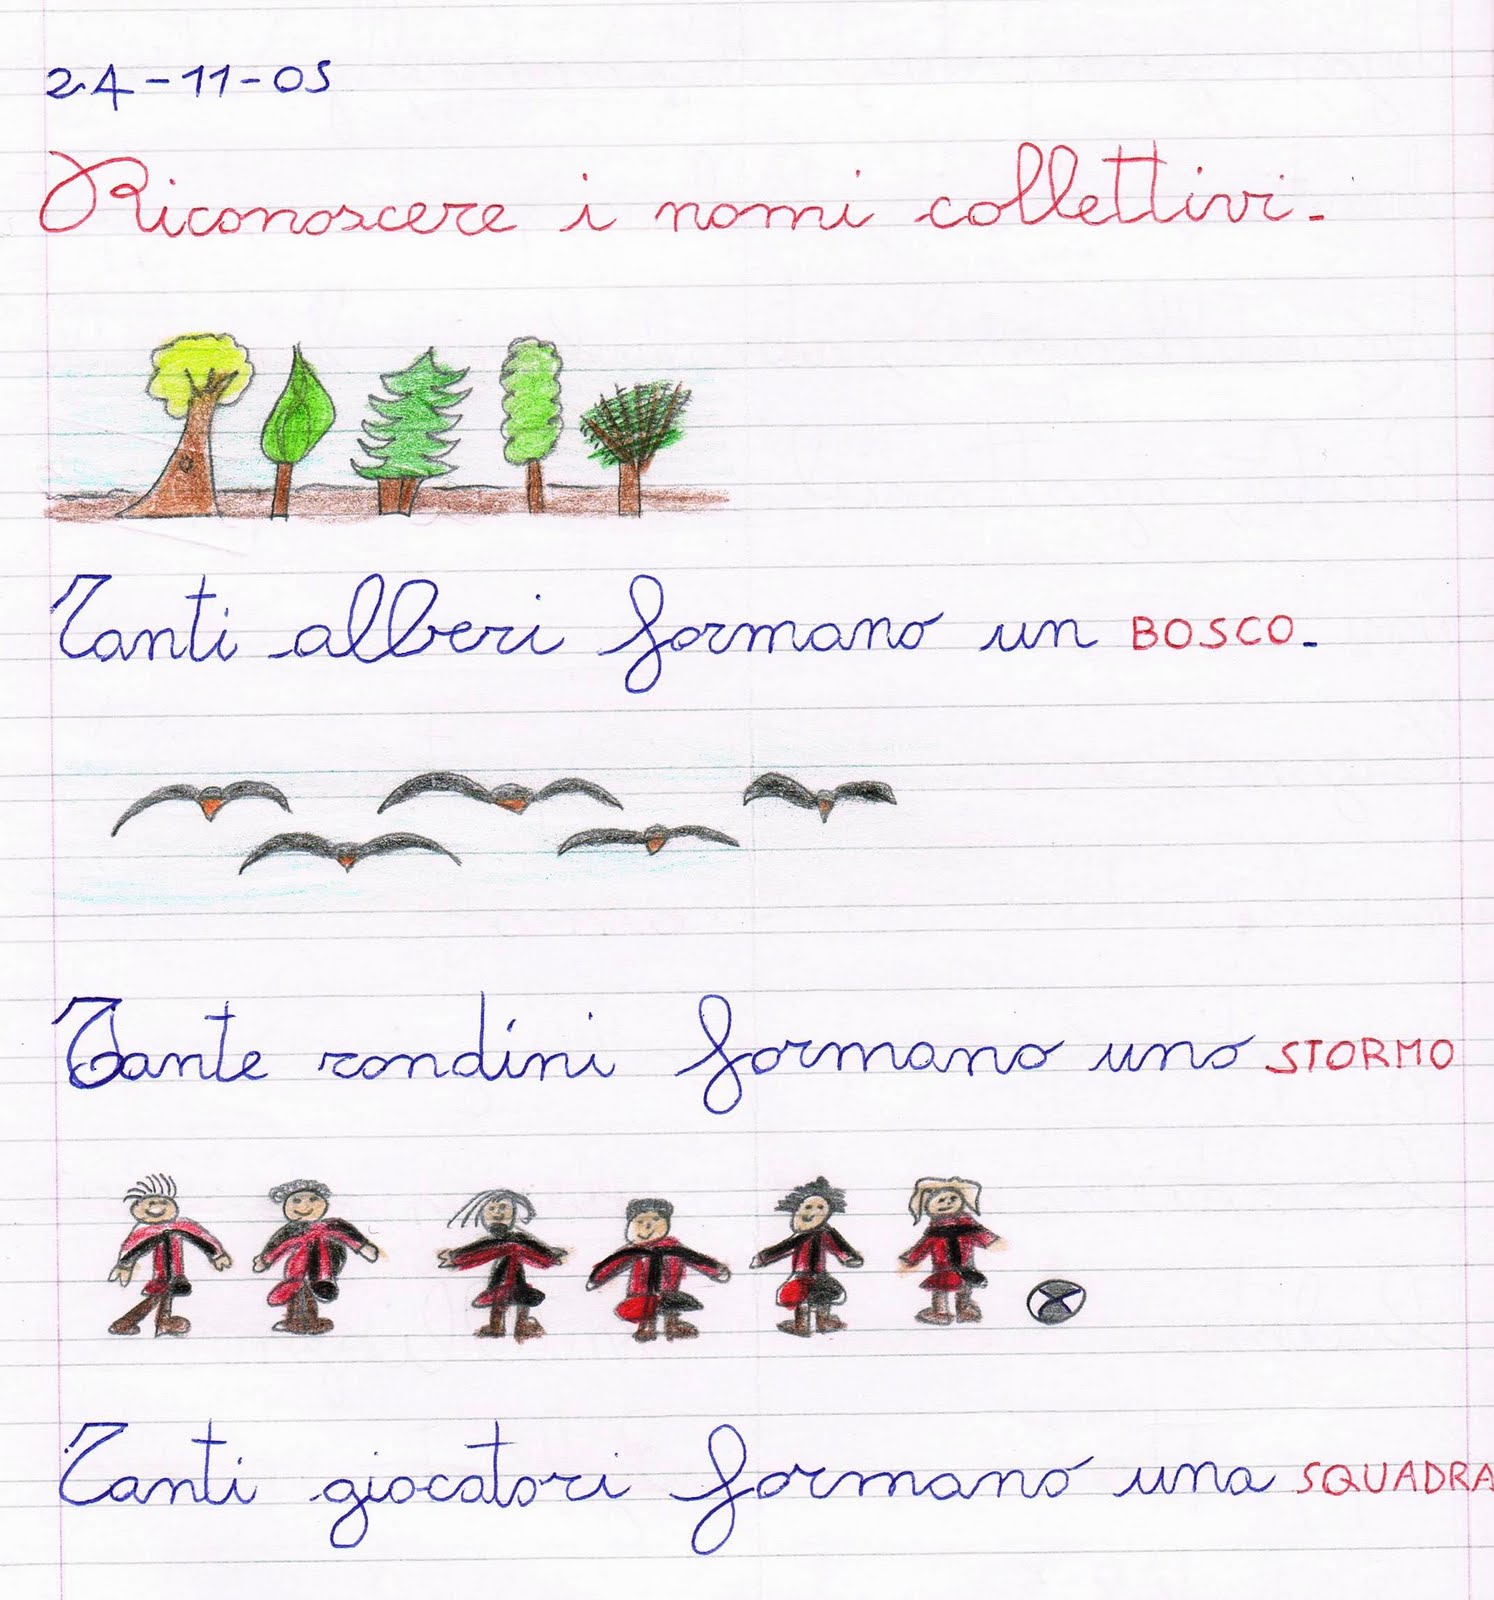 24-11-05
Riconoscere i nomi collettivi.
Tanti alberi formano un BOSCO.
Tante rondini formano uno STORMO
Tanti giocatori formano una SQUADRA